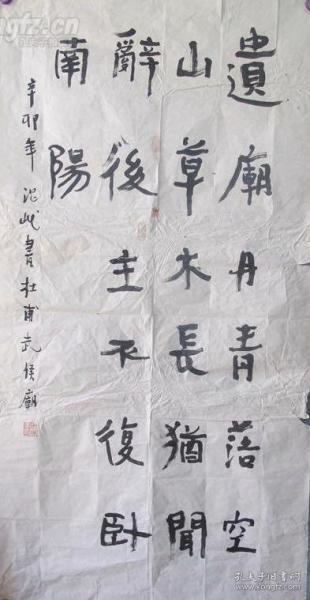 遺廟丹青落空
山草木長猶聞
辭後主不復臥
南陽
辛卯年 書杜甫武侯廟
kongfz.cn
孔夫子旧书网